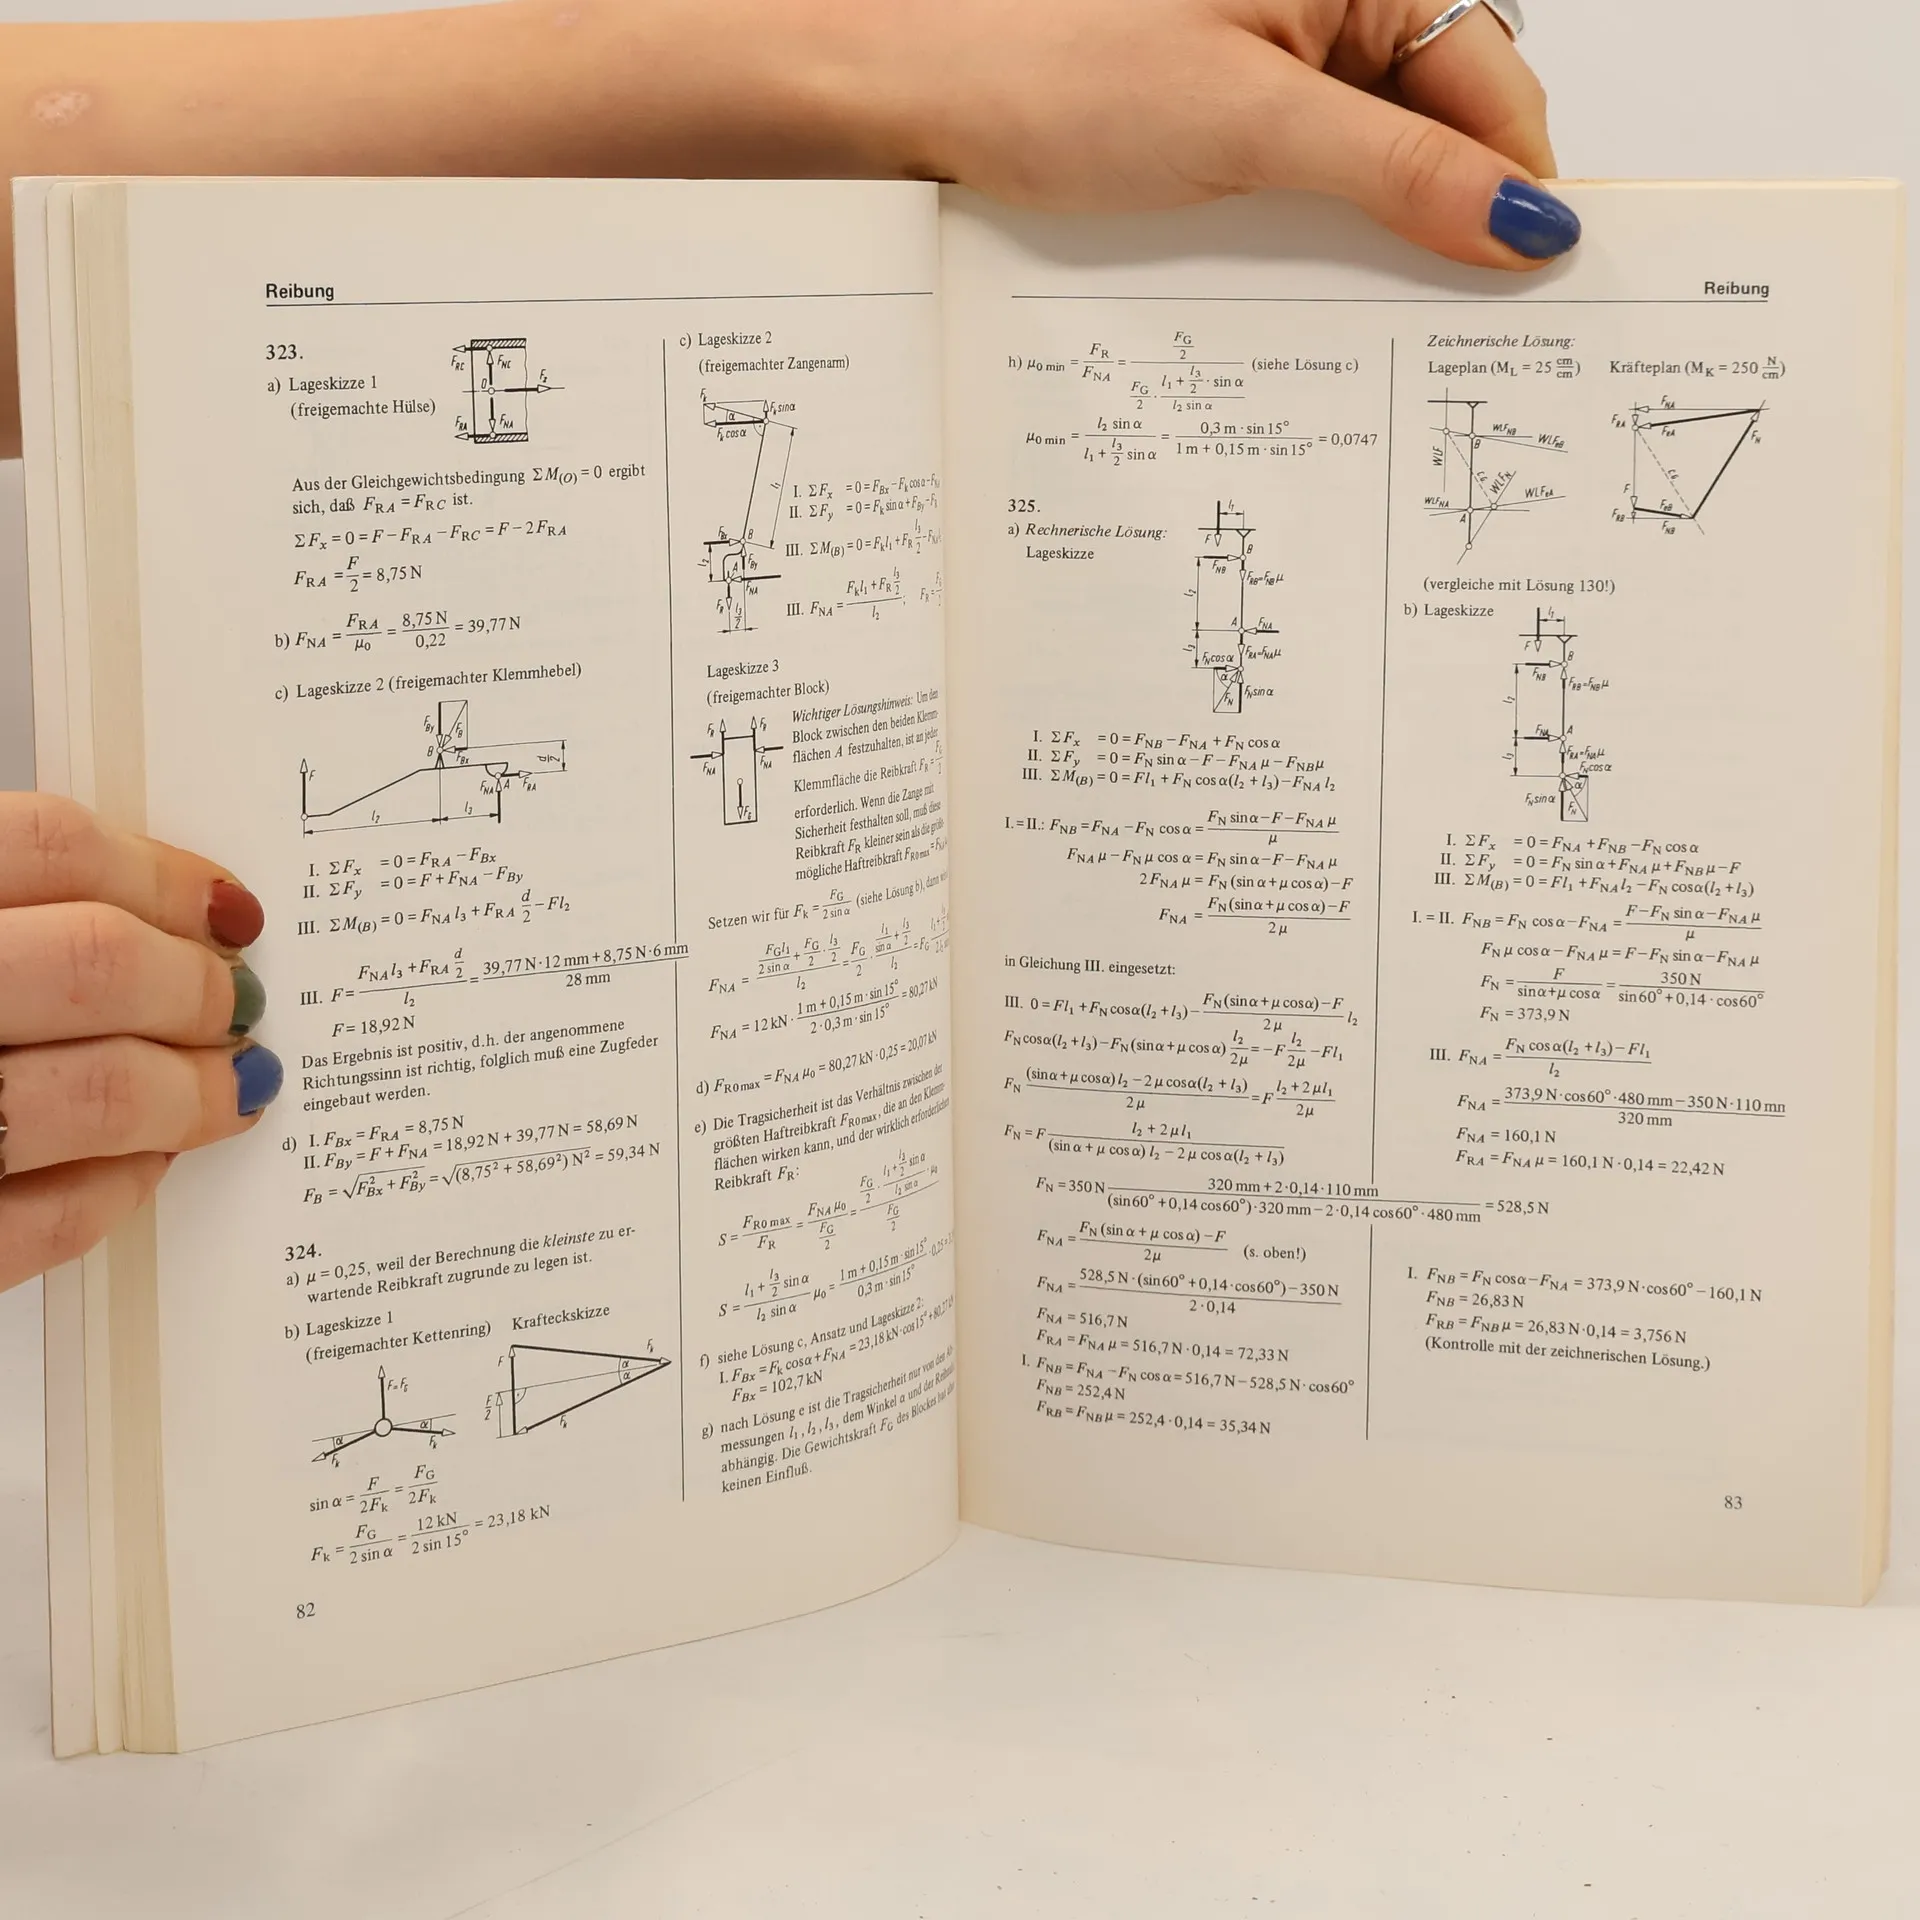 Reibung
323.
a) Lageskizze 1
(freigemachte Hülse)
F_RC F_NC
0 F_z
F_RA F_NA
Aus der Gleichgewichtsbedingung Σ M_(O) = 0 ergibt
sich, daß F_RA = F_RC ist.
Σ F_x = 0 = F − F_RA − F_RC = F − 2 F_RA
F_RA = F/2 = 8,75 N
b) F_NA = F_RA/μ₀ = 8,75 N/0,22 = 39,77 N
c) Lageskizze 2 (freigemachter Klemmhebel)
F_By F_B
B F_Bx d/2
F F_NA A F_RA
l₂ l₃
I. Σ F_x = 0 = F_RA − F_Bx
II. Σ F_y = 0 = F + F_NA − F_By
III. Σ M_(B) = 0 = F_NA l₃ + F_RA d/2 − F l₂
III. F = (F_NA l₃ + F_RA d/2)/l₂ = (39,77 N · 12 mm + 8,75 N · 6 mm)/28 mm
F = 18,92 N
Das Ergebnis ist positiv, d.h. der angenommene
Richtungssinn ist richtig, folglich muß eine Zugfeder
eingebaut werden.
d) I. F_Bx = F_RA = 8,75 N
II. F_By = F + F_NA = 18,92 N + 39,77 N = 58,69 N
F_B = √(F²_Bx + F²_By) = √((8,75² + 58,69²) N²) = 59,34 N
324.
a) μ = 0,25, weil der Berechnung die kleinste zu er-
wartende Reibkraft zugrunde zu legen ist.
b) Lageskizze 1 Krafteckskizze
(freigemachter Kettenring)
F = F_G
α α F_k F_k
F F/2 F_k F_k α α
sin α = F/2F_k = F_G/2F_k
F_k = F_G/(2 sin α) = 12 kN/(2 sin 15°) = 23,18 kN
82
c) Lageskizze 2
(freigemachter Zangenarm)
F_k α F_k sin α
F_k cos α
l₁
I. Σ F_x = 0 = F_Bx − F_k cos α − F_NA
II. Σ F_y = 0 = F_k sin α + F_By − F_R
III. Σ M_(B) = 0 = F_k l₁ + F_R l₃/2 − F_NA
F_Bx B
l₂ A F_By
F_NA
F_R l₃/2
III. F_NA = (F_k l₁ + F_R l₃/2)/l₂; F_R =
Lageskizze 3
(freigemachter Block)
F_R F_R
F_NA F_NA
F_G
Wichtiger Lösungshinweis: Um den
Block zwischen den beiden Klemm-
flächen A festzuhalten, ist an jeder
Klemmfläche die Reibkraft F_R =
erforderlich. Wenn die Zange mit
Sicherheit festhalten soll, muß diese
Reibkraft F_R kleiner sein als die größt-
mögliche Haftreibkraft F_R0 max =
Setzen wir für F_k = F_G/(2 sin α) (siehe Lösung b), dann
F_NA = (F_G l₁/(2 sin α) + F_G/2 · l₃/2)/l₂ = F_G/2 · (l₁/sin α + l₃/2)/l₂ = F_G
F_NA = 12 kN · (1 m + 0,15 m · sin 15°)/(2 · 0,3 m · sin 15°) = 80,27 kN
d) F_R0 max = F_NA μ₀ = 80,27 kN · 0,25 = 20,07 kN
e) Die Tragsicherheit ist das Verhältnis zwischen der
größten Haftreibkraft F_R0 max, die an den Klemm-
flächen wirken kann, und der wirklich erforderlichen
Reibkraft F_R:
S = F_R0 max/F_R = F_NA μ₀/(F_G/2) = (F_G/2 · (l₁ + l₃/2 sin α)/(l₂ sin α) · μ₀)/(F_G/2)
S = (l₁ + l₃/2 sin α)/(l₂ sin α) μ₀ = (1 m + 0,15 m · sin 15°)/(0,3 m · sin 15°) · 0,25 =
f) siehe Lösung c, Ansatz und Lageskizze 2:
I. F_Bx = F_k cos α + F_NA = 23,18 kN · cos 15° + 80,27 kN
F_Bx = 102,7 kN
g) nach Lösung e ist die Tragsicherheit nur von den Ab-
messungen l₁, l₂, l₃, dem Winkel α und der Reibzahl
abhängig. Die Gewichtskraft F_G des Blockes hat
keinen Einfluß.
Reibung
h) μ₀ min = F_R/F_NA = (F_G/2)/(F_G/2 · (l₁ + l₃/2 · sin α)/(l₂ sin α)) (siehe Lösung c)
μ₀ min = l₂ sin α/(l₁ + l₃/2 sin α) = 0,3 m · sin 15°/(1 m + 0,15 m · sin 15°) = 0,0747
325.
a) Rechnerische Lösung:
Lageskizze
l₁
F B
F_NB
F_RB = F_NB μ
l₂
A F_NA
l₃ F_RA = F_NA μ
F_N cos α
α F_N F_N sin α
I. Σ F_x = 0 = F_NB − F_NA + F_N cos α
II. Σ F_y = 0 = F_N sin α − F − F_NA μ − F_NB μ
III. Σ M_(B) = 0 = F l₁ + F_N cos α (l₂ + l₃) − F_NA l₂
I. = II.: F_NB = F_NA − F_N cos α = (F_N sin α − F − F_NA μ)/μ
F_NA μ − F_N μ cos α = F_N sin α − F − F_NA μ
2 F_NA μ = F_N (sin α + μ cos α) − F
F_NA = (F_N (sin α + μ cos α) − F)/2 μ
in Gleichung III. eingesetzt:
III. 0 = F l₁ + F_N cos α (l₂ + l₃) − (F_N (sin α + μ cos α) − F)/2 μ l₂
F_N cos α (l₂ + l₃) − F_N (sin α + μ cos α) l₂/2μ = −F l₂/2μ − F l₁
F_N ((sin α + μ cos α) l₂ − 2 μ cos α (l₂ + l₃))/2 μ = F (l₂ + 2 μ l₁)/2 μ
F_N = F (l₂ + 2 μ l₁)/((sin α + μ cos α) l₂ − 2 μ cos α (l₂ + l₃))
F_N = 350 N (320 mm + 2 · 0,14 · 110 mm)/((sin 60° + 0,14 cos 60°) · 320 mm − 2 · 0,14 cos 60° · 480 mm) = 528,5 N
F_NA = (F_N (sin α + μ cos α) − F)/2μ (s. oben!)
F_NA = (528,5 N · (sin 60° + 0,14 · cos 60°) − 350 N)/(2 · 0,14)
F_NA = 516,7 N
F_RA = F_NA μ = 516,7 N · 0,14 = 72,33 N
I. F_NB = F_NA − F_N cos α = 516,7 N − 528,5 N · cos 60°
F_NB = 252,4 N
F_RB = F_NB μ = 252,4 · 0,14 = 35,34 N
Zeichnerische Lösung:
Lageplan (M_L = 25 cm/cm) Kräfteplan (M_K = 250 N/cm)
WLF B WLF_NB WLF_eB
CG WLF_N
WLF_NA A WLF_eA
F_NA
F_RA F_eA F_N
F CG
F_RB F_eB
F_NB
(vergleiche mit Lösung 130!)
b) Lageskizze
l₁
F B
F_NB
F_RB = F_NB μ
l₂
F_NA A
l₃ F_RA = F_NA μ
F_N cos α
F_N sin α α F_N
I. Σ F_x = 0 = F_NA + F_NB − F_N cos α
II. Σ F_y = 0 = F_N sin α + F_NA μ + F_NB μ − F
III. Σ M_(B) = 0 = F l₁ + F_NA l₂ − F_N cos α (l₂ + l₃)
I. = II. F_NB = F_N cos α − F_NA = (F − F_N sin α − F_NA μ)/μ
F_N μ cos α − F_NA μ = F − F_N sin α − F_NA μ
F_N = F/(sin α + μ cos α) = 350 N/(sin 60° + 0,14 · cos 60°)
F_N = 373,9 N
III. F_NA = (F_N cos α (l₂ + l₃) − F l₁)/l₂
F_NA = (373,9 N · cos 60° · 480 mm − 350 N · 110 mm)/320 mm
F_NA = 160,1 N
F_RA = F_NA μ = 160,1 N · 0,14 = 22,42 N
I. F_NB = F_N cos α − F_NA = 373,9 N · cos 60° − 160,1 N
F_NB = 26,83 N
F_RB = F_NB μ = 26,83 N · 0,14 = 3,756 N
(Kontrolle mit der zeichnerischen Lösung.)
83